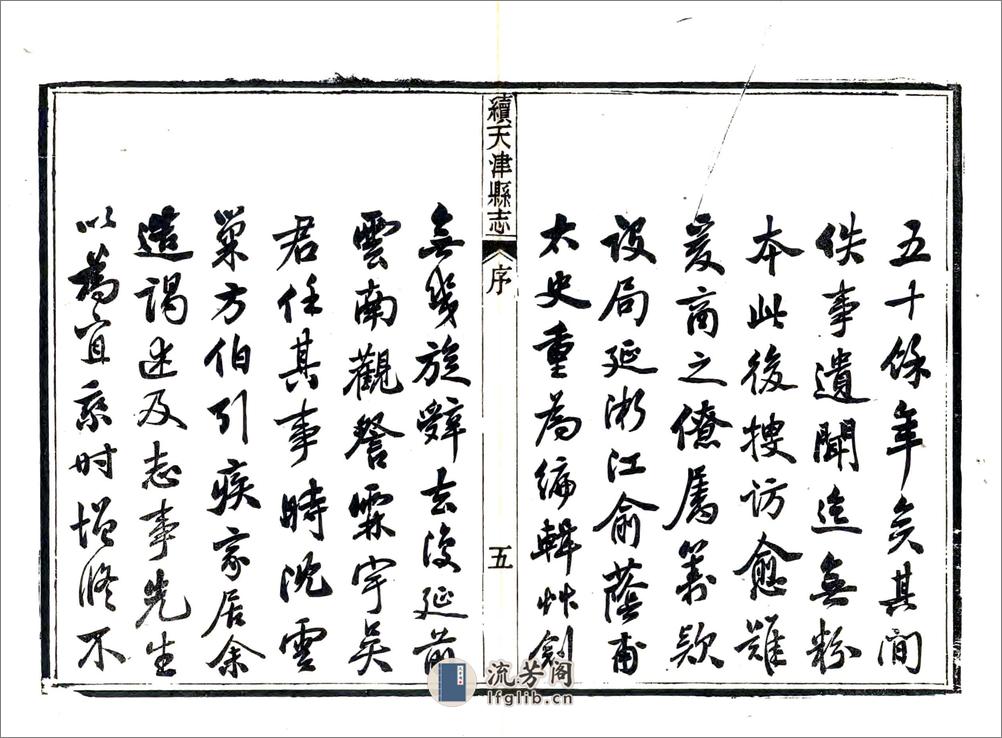 五十餘年矣其間
佚事遺聞迄無粉
本此後搜訪愈難
爰商之僚屬籌款
設局延浙江俞蔭甫
太史重為編輯艸創
續天津縣志
序
五
無幾旋辭去復延前
雲南觀詧霖宇吳
君任其事時沈雲
巢方伯引疾家居余
造謁述及志事先生
以為宜乘時增修不
流芳阁
lfglib.cn